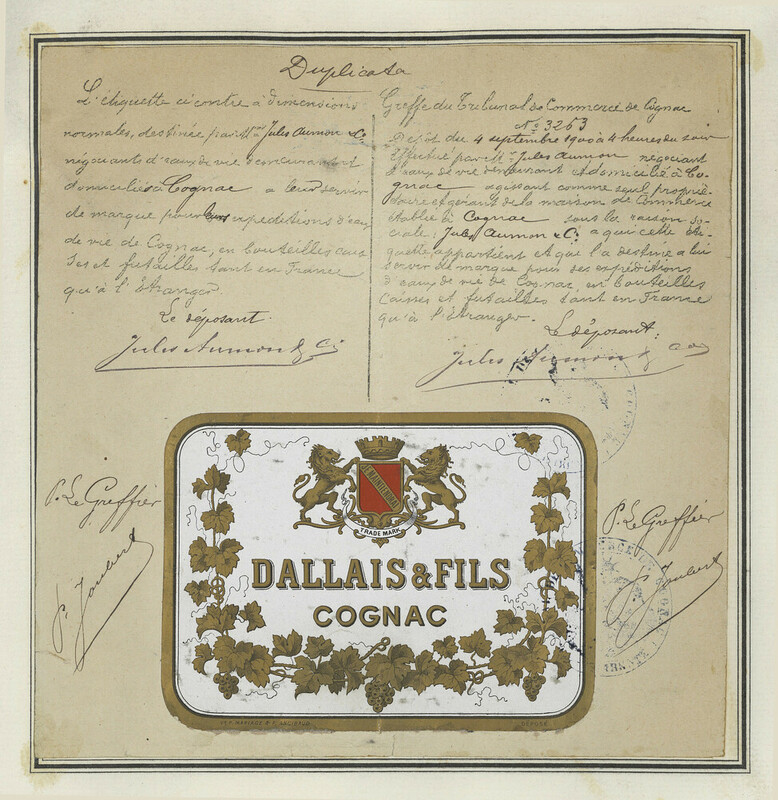 Duplicata
L'étiquette ci contre à dimensions
normales, destinée par Mrs Jules Aumon & Co.
négociants d'eaux de vie demeurant
domiciliés à Cognac a leur servir
de marque pour leurs expéditions d'eaux
de vie de Cognac, en bouteilles cais
ses et futailles tant en France
qu'à l'étranger
Le déposant.
Jules Aumon & Co
Greffe du Tribunal de Commerce de Cognac
No 3253
Dépôt du 4 septembre 1900 à 4 heures du soir
effectué par Mr. Jules Aumon négociant
d'eaux de vie demeurant et domicilié à Co
gnac agissant comme seul proprié-
taire et gérant de la maison de Commerce
établie à Cognac sous la raison so-
ciale: Jules Aumon & Co. a qui cette éti-
quette appartient et qui l'a destine a lui
servir de marque pour ses expéditions
d'eaux de vie de Cognac, en bouteilles
caisses et futailles tant en France
qu'à l'étranger.
Le déposant:
Jules Aumon & Co
P. Le Greffier
P. Joubert
TRADE MARK
DALLAIS & FILS
COGNAC
DÉPOSÉ
P. Le Greffier
P. Joubert